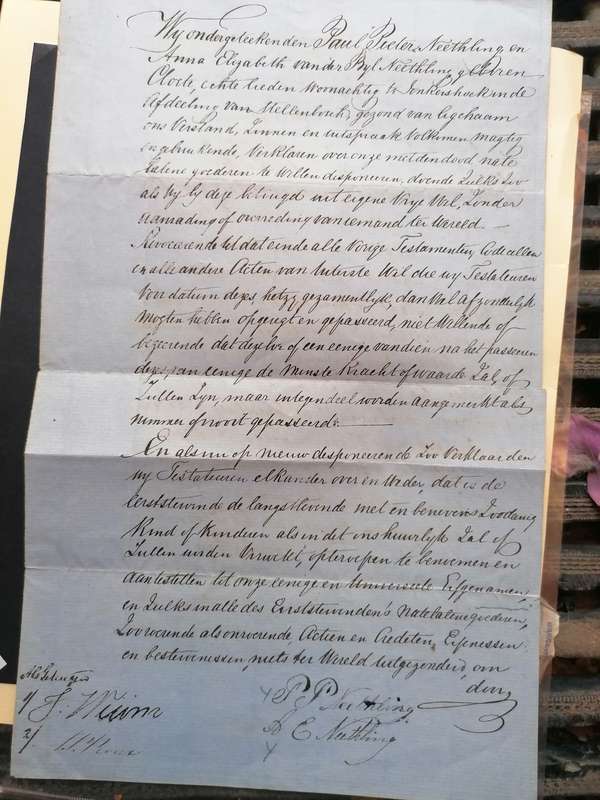 Wy ondergeteekenden Paul Pieter Neethling en
Anna Elizabeth van der Byl Neethling geboren
Cloete, echte lieden woonachtig te Jonkershoek in de
Afdeeling van Stellenbosch, gezond van ligchaam
ons Verstand, Zinnen en uitspraak volkomen magtig
en gebruikende, Verklaren over onze met den dood nate
latene goederen te willen disponeren, doende zulks Zoo
als wy by deze betuigd uit eigene Vrye Wil, Zonder
aanrading of overreding van iemand ter Wereld.—
Revocerende tot dat einde alle Vorige Testamenten, Codicillen
en alle andere Acten van Uiterste Wil die wy Testateuren
Voor datum dezes, hetzy gezamentlyk, dan Wel afzonderlyk
mogten hebben opgerigt en gepasseerd, niet Willende of
begeerende dat dezelve of een eenige van dien na het passeren
dezes van eenige de minste Kracht of waarde Zal, of
Zullen Zyn, maar integendeel worden aangemerkt als
nimmer of nooit gepasseerd.—
En als nu op nieuw disponerende Zoo Verklaarden
wy Testateuren elkander over en Weder, dat is de
eerststervende de langstlevende met en benevens Zoodanig
Kind of Kinderen als in dit ons huwlyk Zal of
Zullen worden Verwekt, opteroepen te benoemen en
aantestellen tot onze eenige en Universeele Erfgenamen,
en Zulks in alle des Eerststervenden's Natelatene goederen,
Zoo roerende als onroerende Actien en Crediten, Erfenissen
en besterfenissen, niets ter Wereld uitgezonderd, om
door
Als Getuigen
1/ J.
2/
P. P. Neethling
A E Neethling